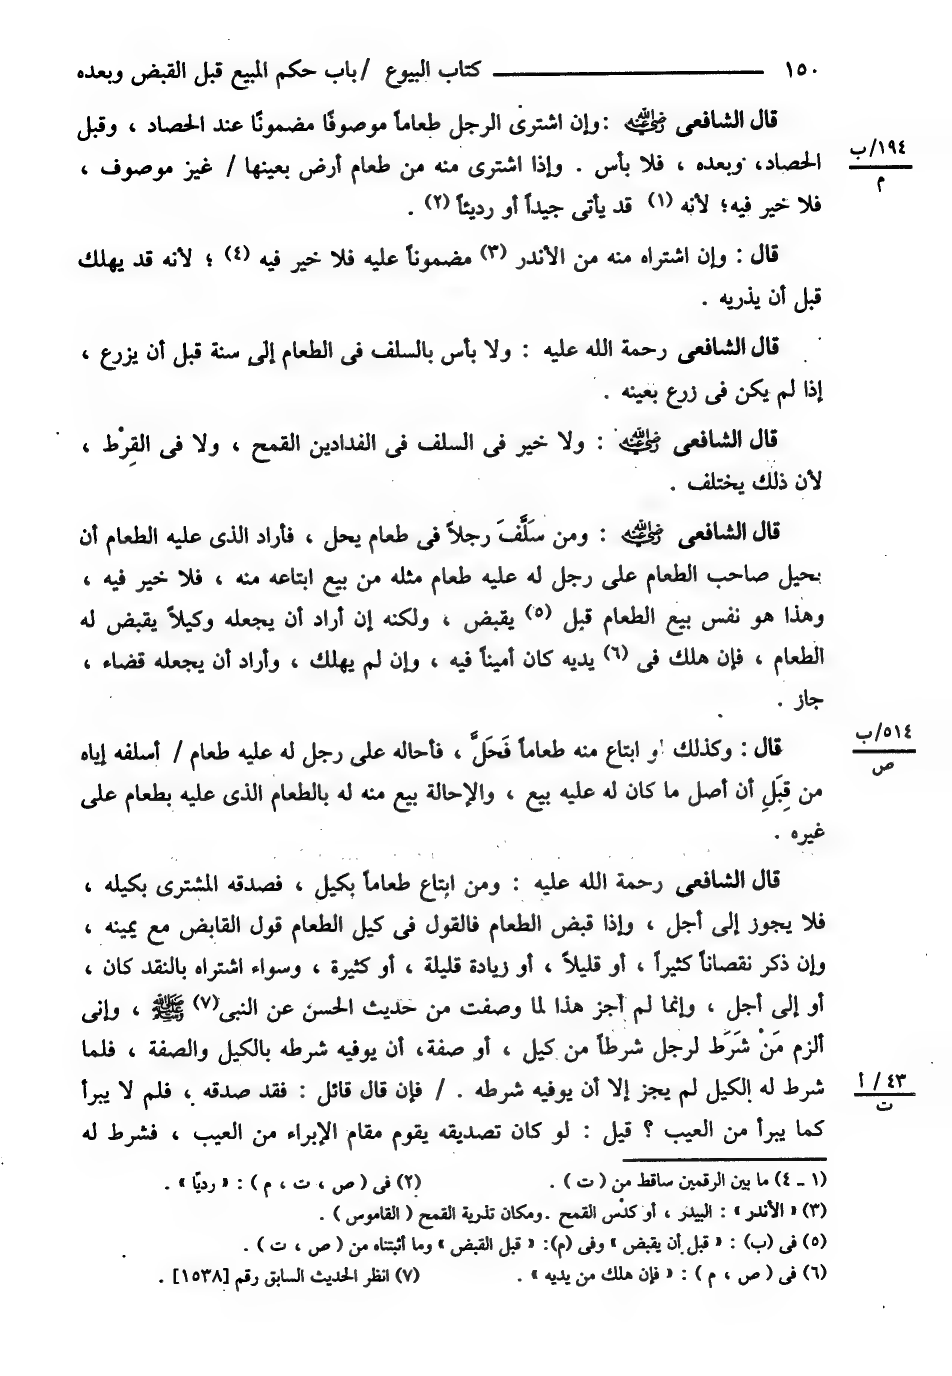 ١٥٠ ــــــــــــــــــــ كتاب البيوع / باب حكم المبيع قبل القبض وبعده
قال الشافعى رضي الله عنه : وإن اشترى الرجل طعاماً موصوفًا مضمونًا عند الحصاد ، وقبل
١٩٤/ب
م
الحصاد، وبعده ، فلا بأس . وإذا اشترى منه من طعام أرض بعينها / غير موصوف ،
فلا خير فيه؛ لأنه (١) قد يأتى جيداً أو رديئاً (٢) .
قال : وإن اشتراه منه من الأندر (٣) مضموناً عليه فلا خير فيه (٤) ؛ لأنه قد يهلك
قبل أن يذريه .
قال الشافعى رحمة الله عليه : ولا بأس بالسلف فى الطعام إلى سنة قبل أن يزرع ،
إذا لم يكن فى زرع بعينه .
قال الشافعى رضي الله عنه : ولا خير فى السلف فى الفدادين القمح ، ولا فى القِرْط ،
لأن ذلك يختلف .
قال الشافعى رضي الله عنه : ومن سَلَّفَ رجلاً فى طعام يحل ، فأراد الذى عليه الطعام أن
يحيل صاحب الطعام على رجل له عليه طعام مثله من بيع ابتاعه منه ، فلا خير فيه ،
وهذا هو نفس بيع الطعام قبل (٥) يقبض ، ولكنه إن أراد أن يجعله وكيلاً يقبض له
الطعام ، فإن هلك فى (٦) يديه كان أميناً فيه ، وإن لم يهلك ، وأراد أن يجعله قضاء ،
جاز .
قال : وكذلك لو ابتاع منه طعاماً فَحَلَّ ، فأحاله على رجل له عليه طعام / أسلفه إياه
٥١٤/ب
ص
من قِبَلِ أن أصل ما كان له عليه بيع ، والإحالة بيع منه له بالطعام الذى عليه بطعام على
غيره .
قال الشافعى رحمة الله عليه : ومن ابتاع طعاماً بكيل ، فصدقه المشترى بكيله ،
فلا يجوز إلى أجل ، وإذا قبض الطعام فالقول فى كيل الطعام قول القابض مع يمينه ،
وإن ذكر نقصاناً كثيراً ، أو قليلاً ، أو زيادة قليلة ، أو كثيرة ، وسواء اشتراه بالنقد كان ،
أو إلى أجل ، وإنما لم أجز هذا لما وصفت من حديث الحسن عن النبى(٧) ﷺ ، وإنى
ألزم مَنْ شَرَطَ لرجل شرطاً من كيل ، أو صفة، أن يوفيه شرطه بالكيل والصفة ، فلما
شرط له الكيل لم يجز إلا أن يوفيه شرطه . / فإن قال قائل : فقد صدقه ، فلم لا يبرأ
٤٣ / أ
ت
كما يبرأ من العيب ؟ قيل : لو كان تصديقه يقوم مقام الإبراء من العيب ، فشرط له
(١ ـ ٤) ما بين الرقمين ساقط من ( ت ) . (٢) فى ( ص ، ت ، م ) : « رديًا » .
(٣) « الأندر » : البيدر ، أو كدْس القمح . ومكان تذرية القمح ( القاموس ) .
(٥) فى (ب) : « قبل أن يقبض » وفى (م): « قبل القبض » وما أثبتناه من ( ص ، ت ) .
(٦) فى ( ص ، م ) : « فإن هلك من يديه » . (٧) انظر الحديث السابق رقم [١٥٣٨] .